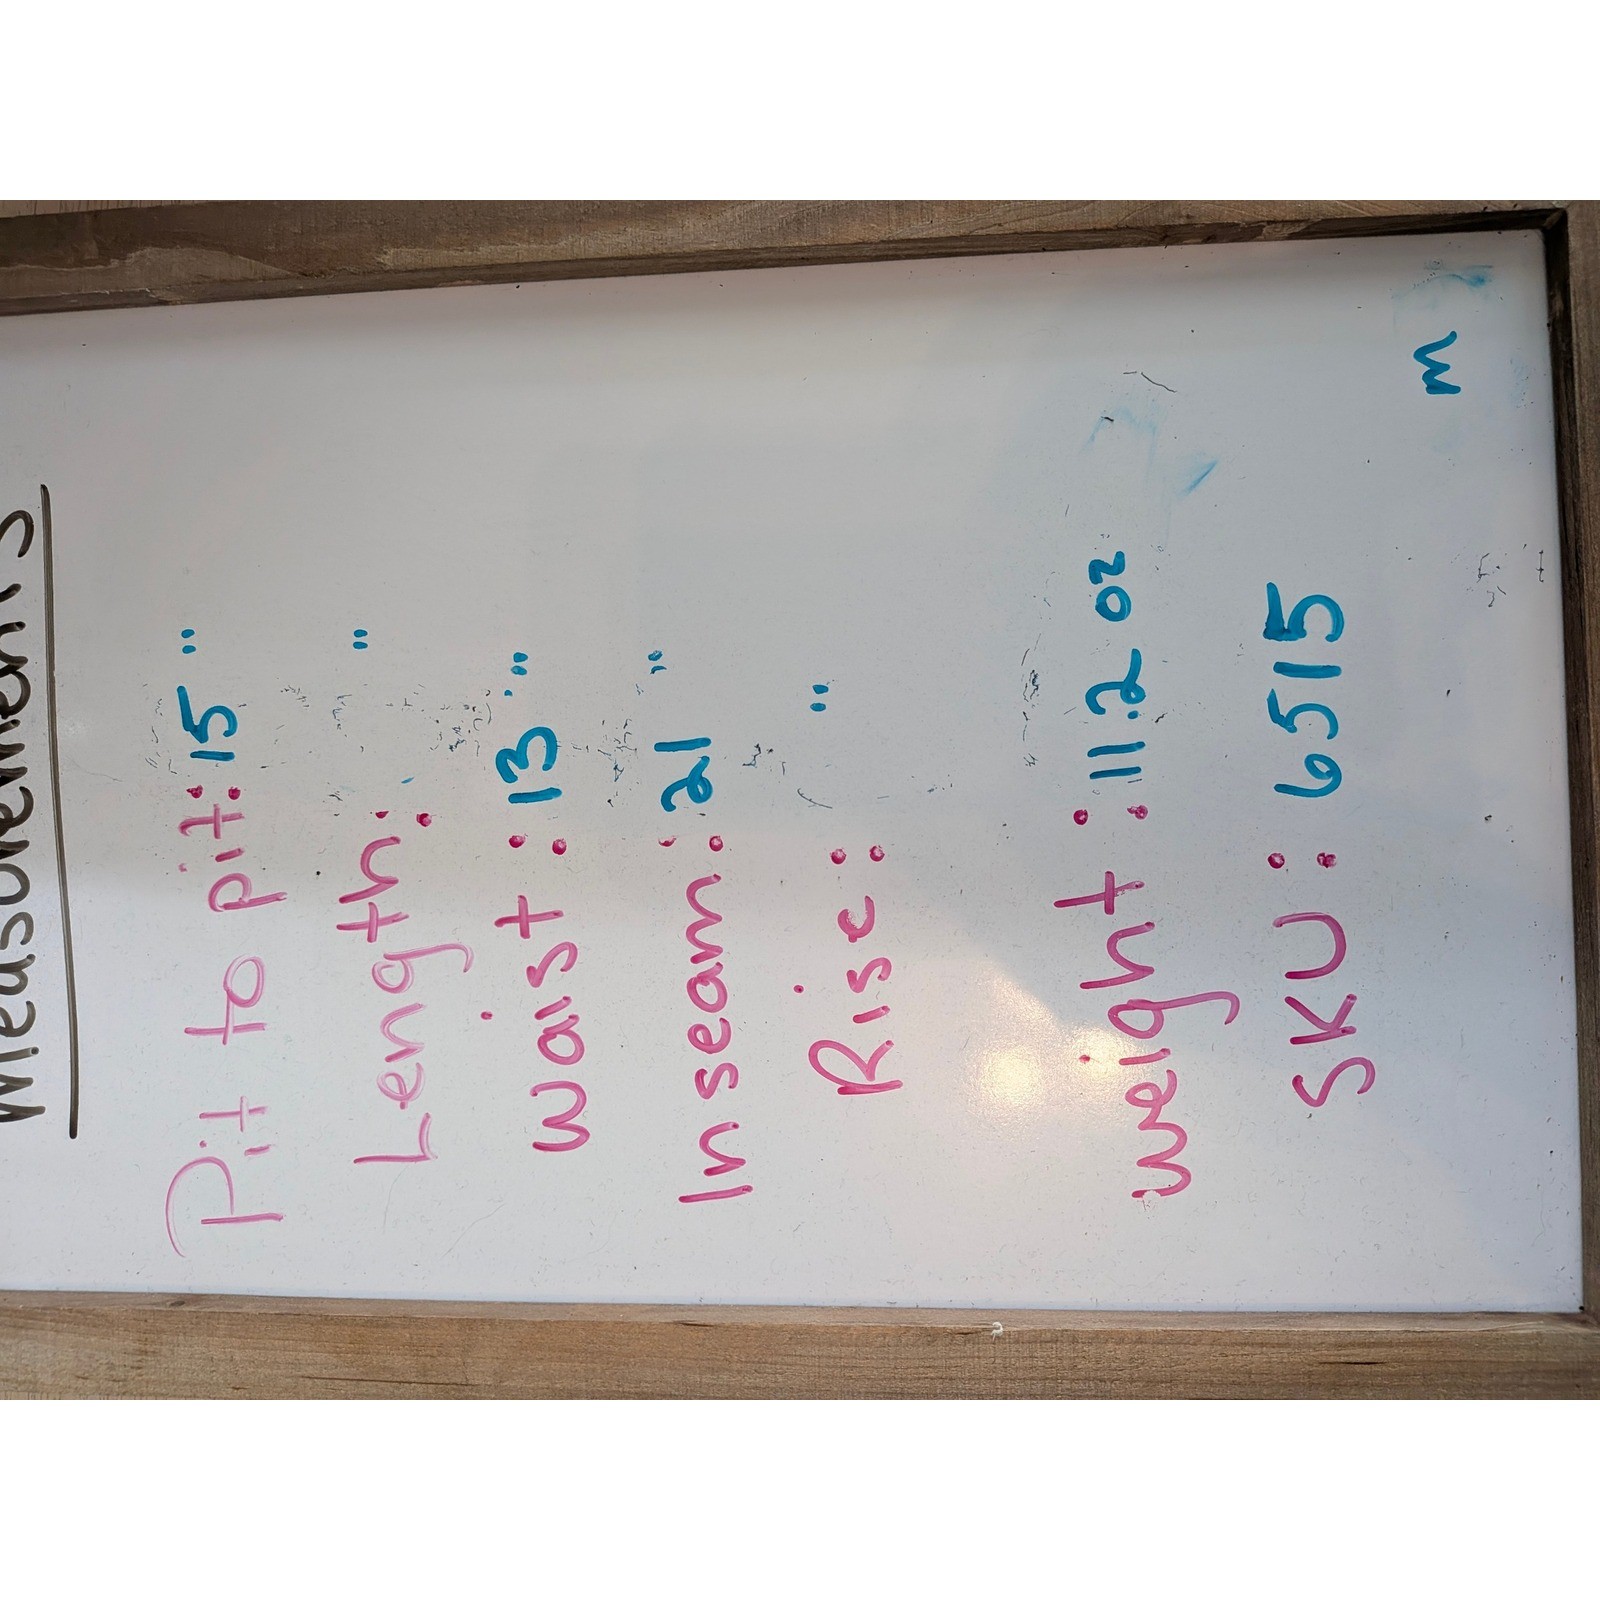 Measurements
Pit to pit: 15 "
Length: "
Waist: 13 "
Inseam: 21 "
Rise: "
Weight: 11.2 oz
SKU: 6515
M